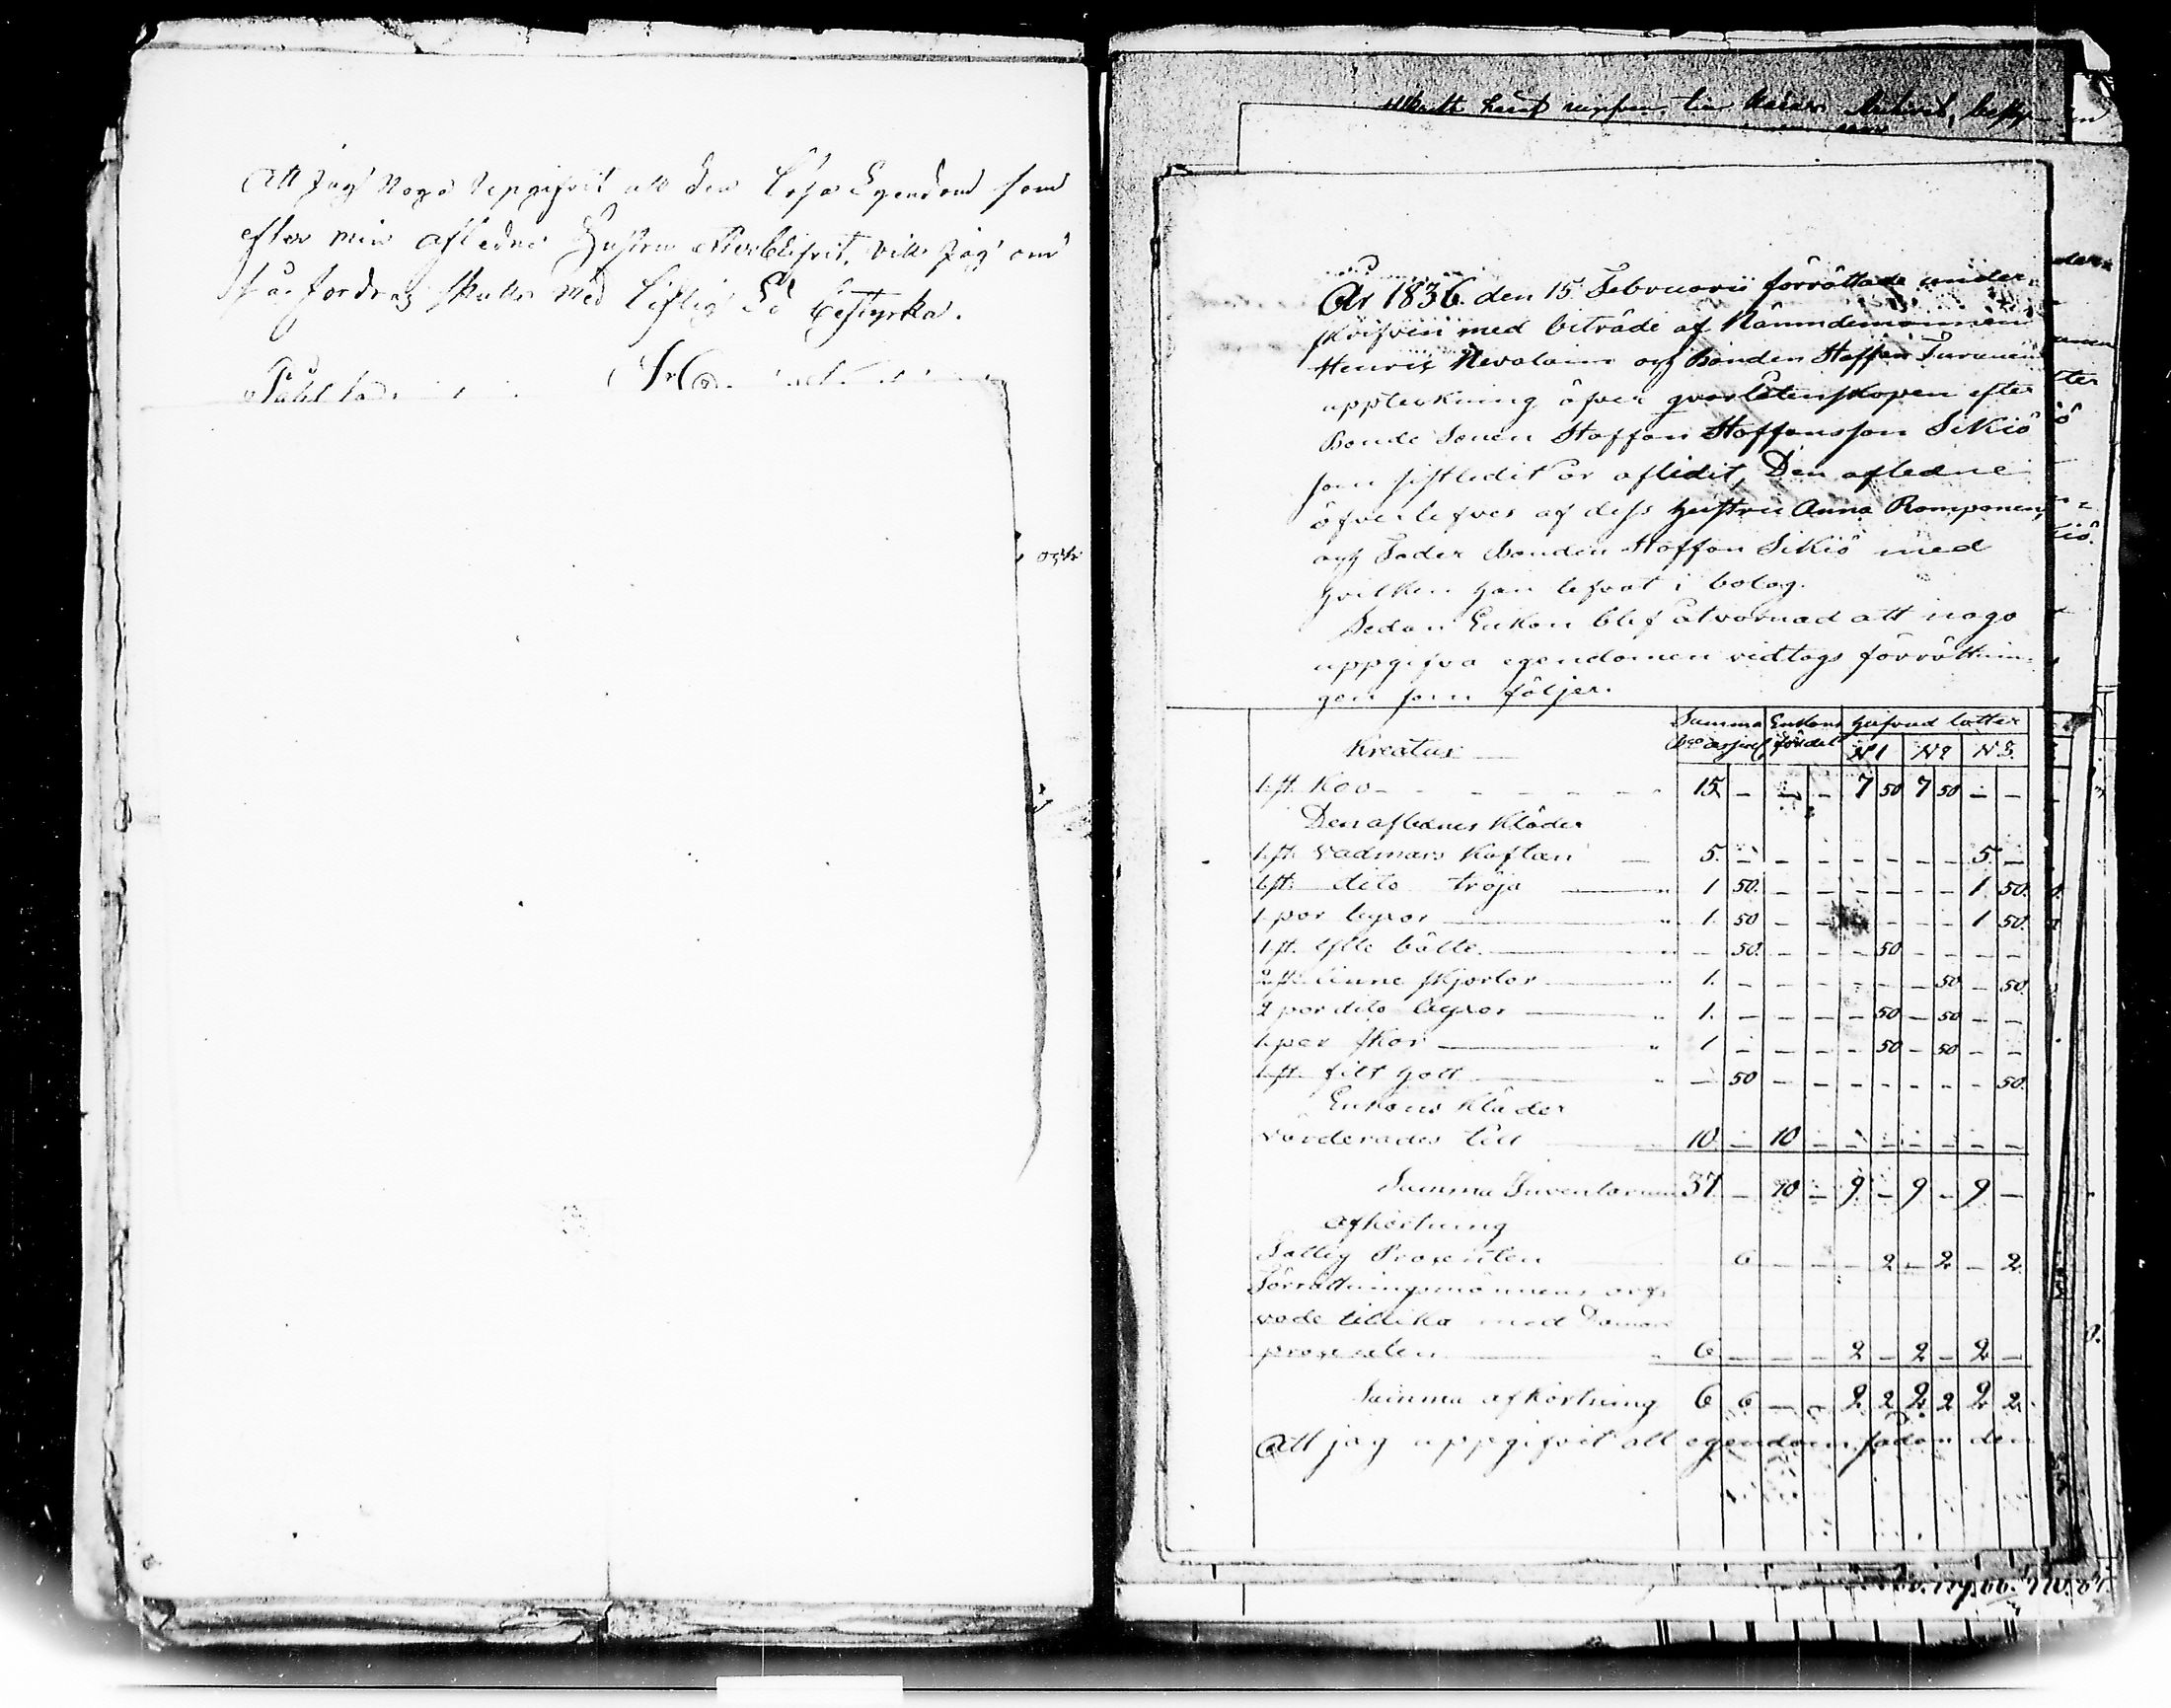 Att Jag Noga Uppgifvit all den Lösa Egendom som
efter min afledne Hustru efterblifvit, vill Jag om
så fordras skulle med Liflig Ed bestyrka.
År 1836 den 15 Februarii förrättade under-
skrifven med biträde af Nämndemannen
Henric Nevalain och Bonden Staffan Turunen
uppteckning öfver qvarlåtenskapen efter
Bonde Sonen Staffan Staffansson Sikiö
som sistledit år aflidit, Den afledne
öfverlefves af dess Hustru Anna Romponen,
och Fader Bonden Staffan Sikiö med
hvilken han lefvat i bolag.
Sedan Enkan blef åtvarnad att noga
uppgifva egendomen vidtogs förrättnin-
gen som följer.
Summa Enkans Hufvud lotter
Kreatur fördel N 1 N 2 N 3.
1. st. Koo - 15 - - - 7 50 7 50 - -
Den aflednes Kläder
1. st. Vadmars Kaftan - 5. - - - - - - - 5. -
1 st. dito tröja 1 50. - - - - - - 1 50.
1. par byxor 1. 50 - - - - - 1 50.
1 st. Ylle bälte. - 50. - - - 50 - - - -
2 st. Linne skjortor 1. - - - - - - 50 - 50.
2 par dito byxor 1. - - - - 50 - 50 - -
1. par skor 1 - - - - 50 - 50 - -
1. st. filt hatt - 50 - - - - - - - 50.
Enkans Kläder
varderades till 10. - 10 - - - - - - -
Summa Inventarium 37. - 10 - 9 - 9 - 9 -
Afkortning
Fattig Procenten 6 - - - 2 - 2 - 2.
Förrättningsmännens arf-
vode tillika med Domare
procenten 6 - - - 2 - 2 - 2 -
Summa afkortning 6 6 - - 2 2 2 2 2 2.
Att jag uppgifvit all egendom sådan den